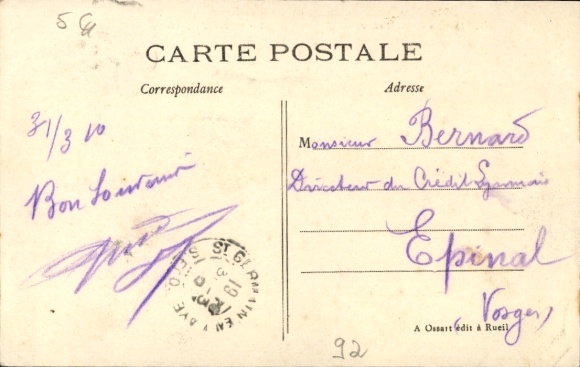 5
CARTE POSTALE
Correspondance
Adresse
31/3 10
Bon Souvenir
Monsieur Bernard
Directeur du Crédit Lyonnais
Epinal
(Vosges)
ST GERMAIN EN LAYE
A Ossart édit à Rueil
92